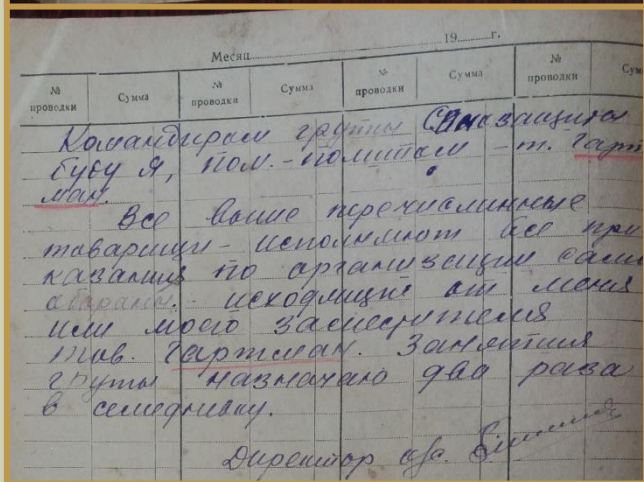 Месяц 19 г.
№ проводки Сумма № проводки Сумма № проводки Сумма № проводки Сум
Командиром группы Самозащиты
буду я, пом.-политом - т. Гарт
ман.
Все выше перечислинные
товарищи - исполняют все при
казания по организации само
обараны. - исходящие от меня
или моего заместителя
тов. Гартман. Занятия
групы назначаю два раза
в семедневку.
Директор